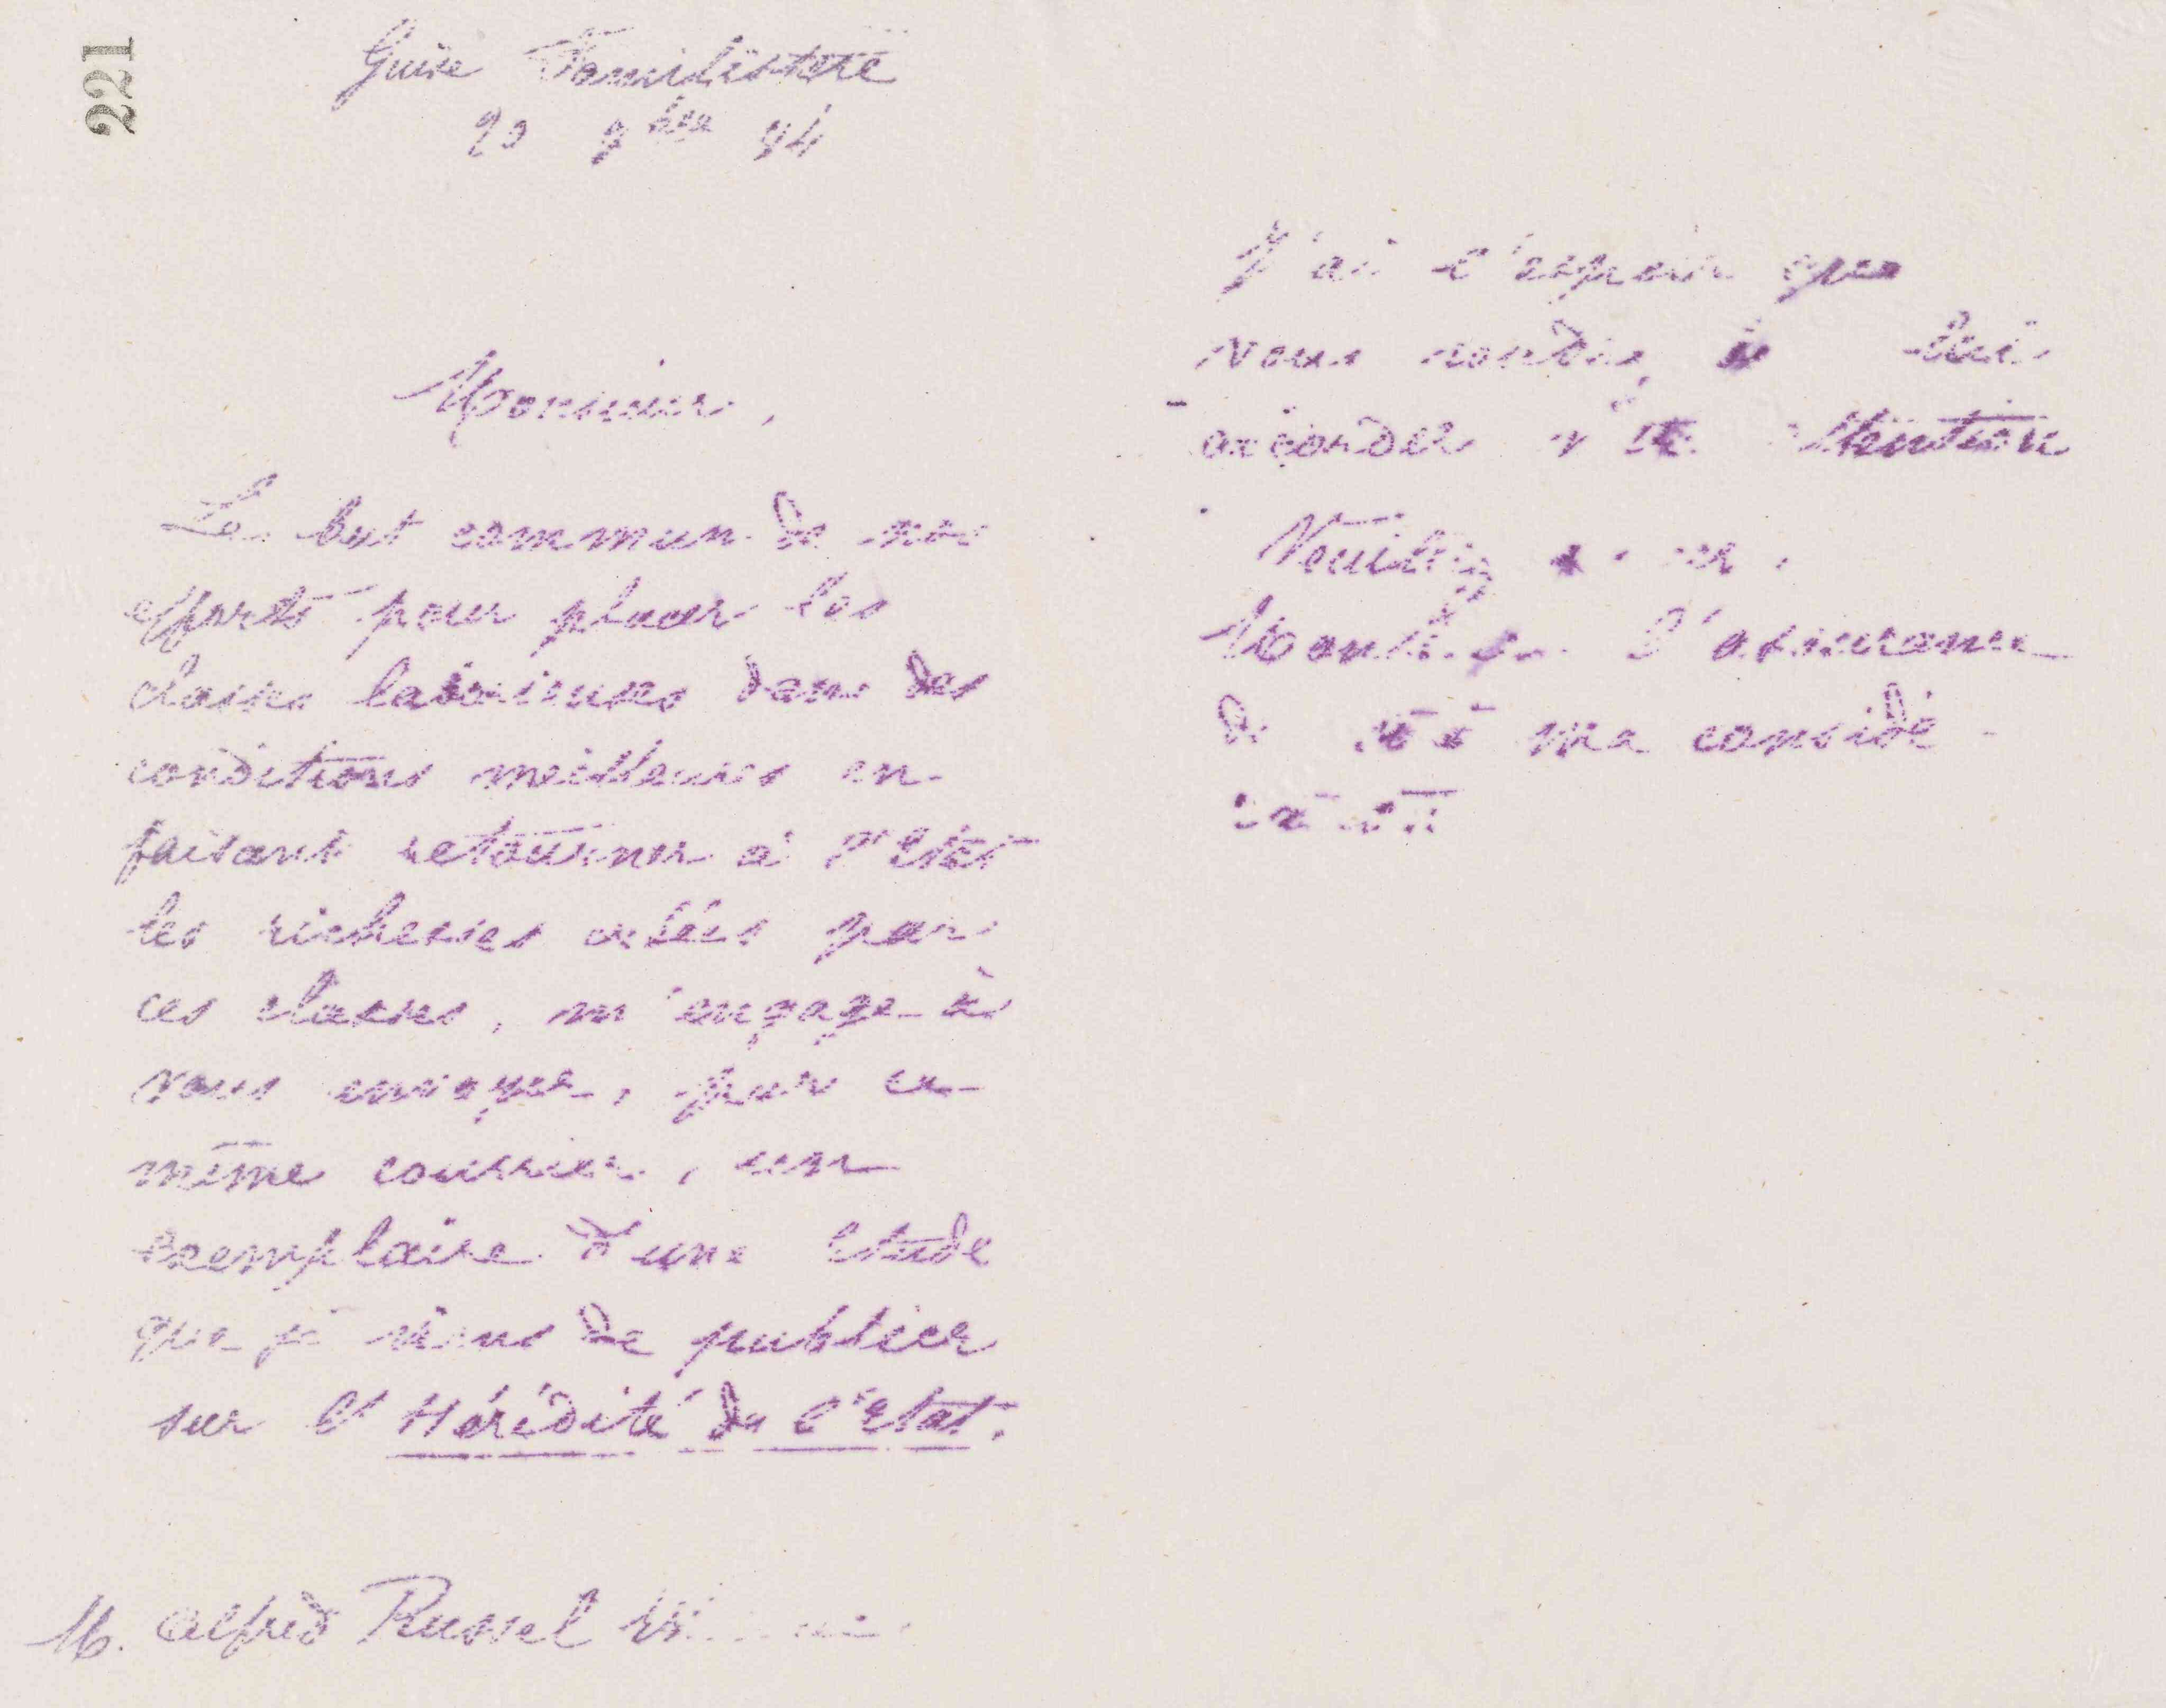 221
Guise Familistère
9bre
Monsieur,
Le but commun de nos
efforts pour placer les
classes laborieuses dans des
conditions meilleures en
faisant retourner à l'Etat
les richesses créées par
ces classes, m'engage à
vous envoyer, par ce
même courrier, un
exemplaire d'une étude
que je viens de publier
sur l'Hérédité de l'Etat.
M. Alfred Russel
J'ai l'espoir que
vous voudrez lui
accorder attention
Veuillez
Monsieur l'assurance
de ma considé-
ration